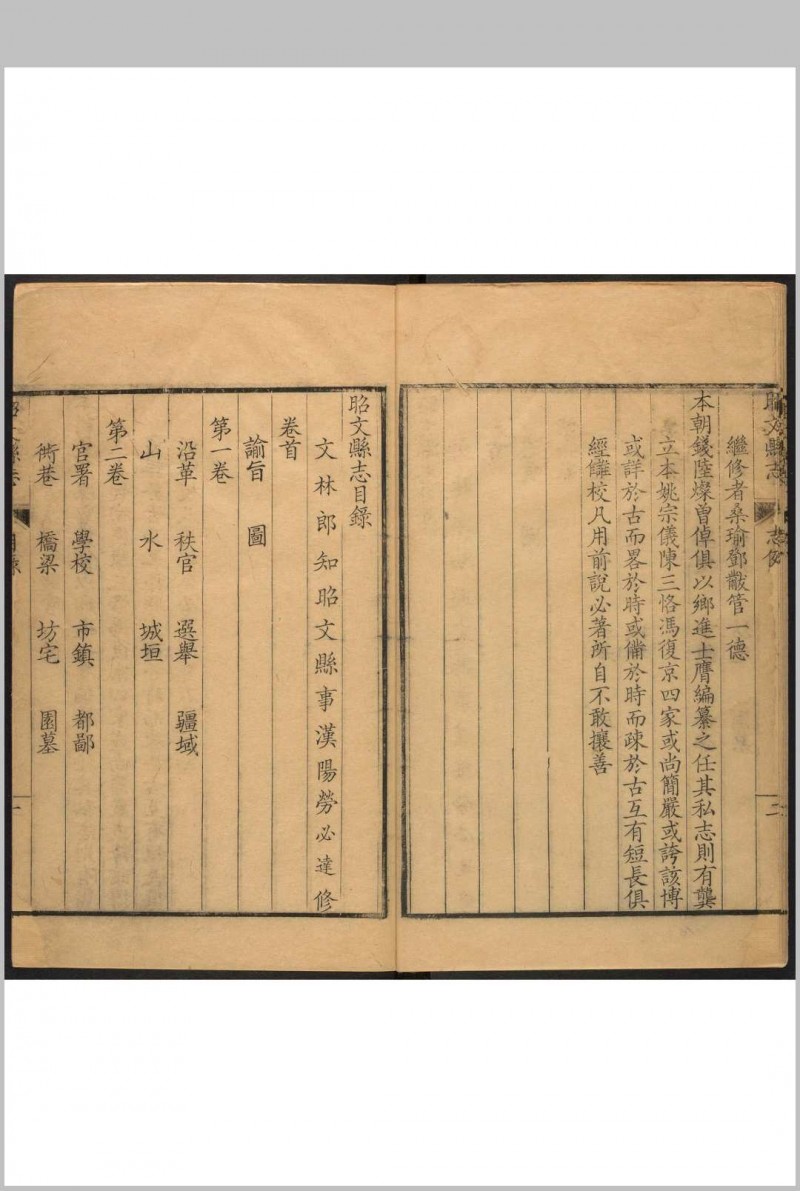 昭文縣志
志例
二
繼修者桑瑜鄧韍管一德
本朝錢陸燦曾倬俱以鄉進士膺編纂之任其私志則有龔
立本姚宗儀陳三恪馮復京四家或尚簡嚴或誇該博
或詳於古而畧於時或備於時而疎於古互有短長俱
經讎校凡用前說必著所自不敢攘善
昭文縣志目錄
文林郎知昭文縣事漢陽勞必達修
卷首
諭旨 圖
第一卷
沿革 秩官 選舉 疆域
山 水 城垣
第二卷
官署 學校 市鎮 都鄙
衖巷 橋梁 坊宅 園墓